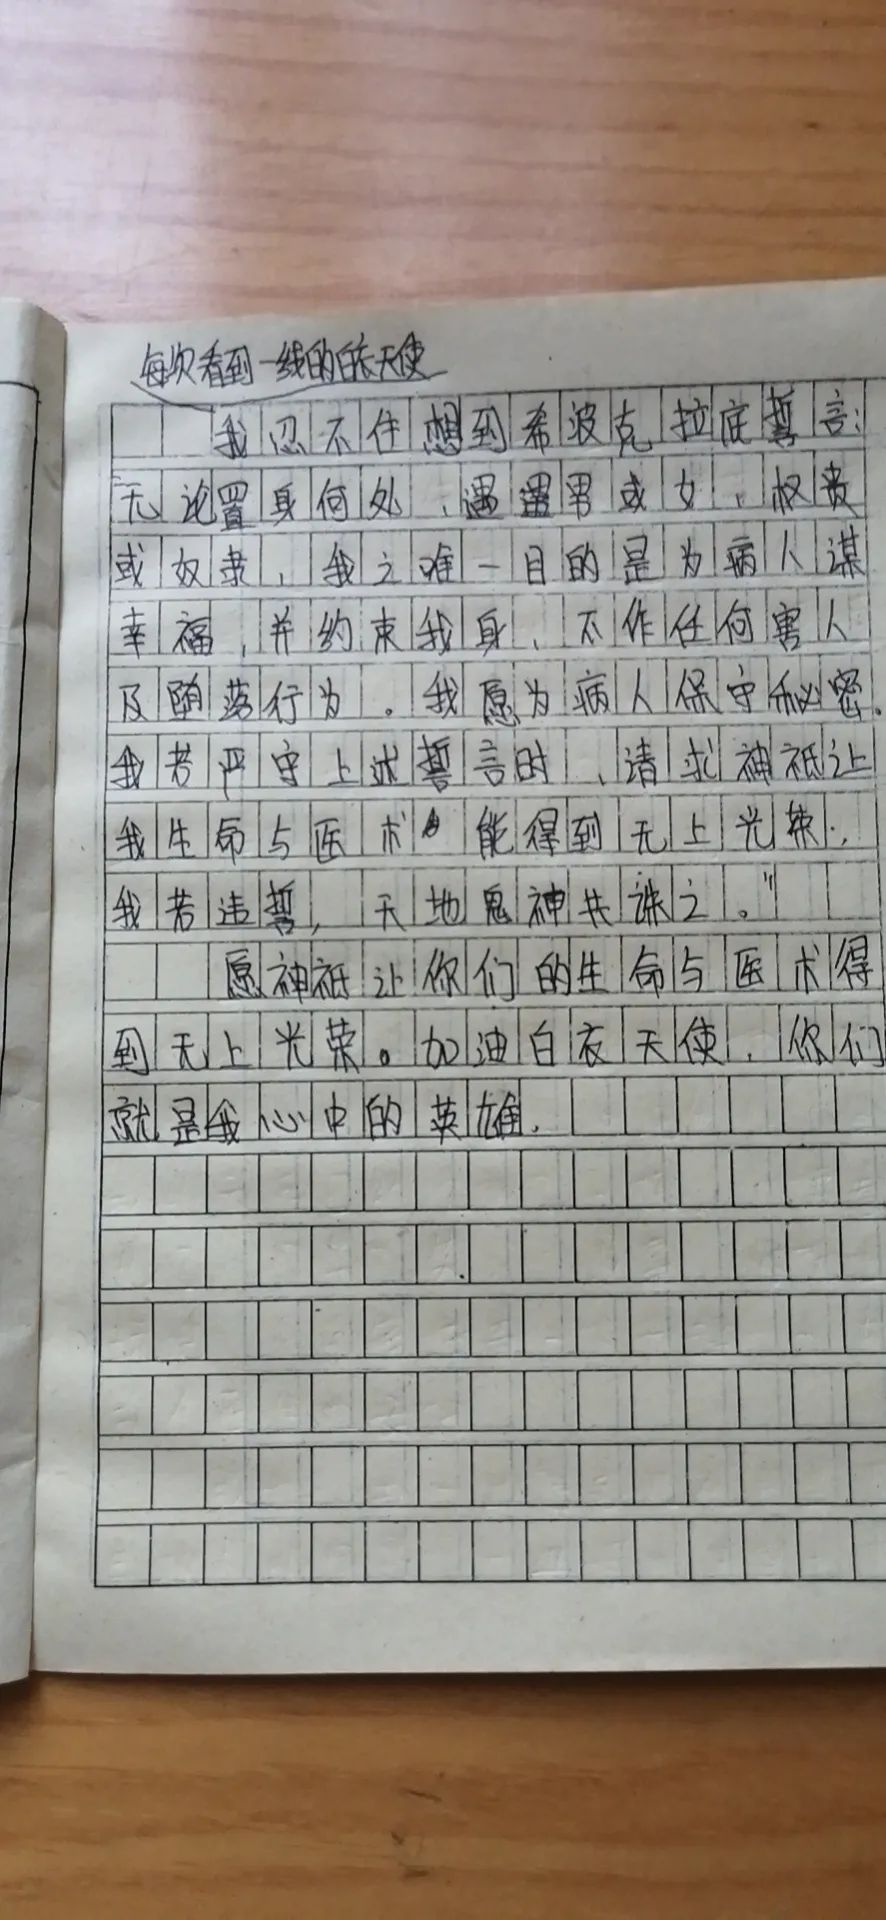 每次看到一线的白衣天使
我忍不住想到希波克拉底誓言:
“无论置身何处,遇遇男或女,权贵
或奴隶,我之唯一目的是为病人谋
幸福,并约束我身,不作任何害人
及堕落行为。我愿为病人保守秘密.
我若严守上述誓言时,请求神祗让
我生命与医术能得到无上光荣.
我若违誓,天地鬼神共诛之。”
愿神祗让你们的生命与医术得
到无上光荣。加油白衣天使,你们
就是我心中的英雄.